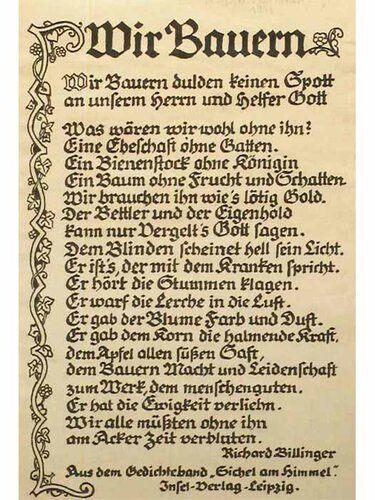 Wir Bauern
Wir Bauern dulden keinen Spott
an unserm Herrn und Helfer Gott
Was wären wir wohl ohne ihn?
Eine Eheschaft ohne Gatten.
Ein Bienenstock ohne Königin
Ein Baum ohne Frucht und Schatten.
Wir brauchen ihn wie's lötig Gold.
Der Bettler und der Eigenhold
kann nur Vergelt's Gott sagen.
Dem Blinden scheinet hell sein Licht.
Er ist's, der mit dem Kranken spricht.
Er hört die Stummen klagen.
Er warf die Lerche in die Luft.
Er gab der Blume Farb und Duft.
Er gab dem Korn die halmende Kraft,
dem Apfel allen süßen Saft,
dem Bauern Macht und Leidenschaft
zum Werk, dem menschenguten.
Er hat die Ewigkeit verliehn.
Wir alle müßten ohne ihn
am Acker Zeit verbluten.
Richard Billinger
Aus dem Gedichtband „Sichel am Himmel“.
Insel-Verlag-Leipzig.